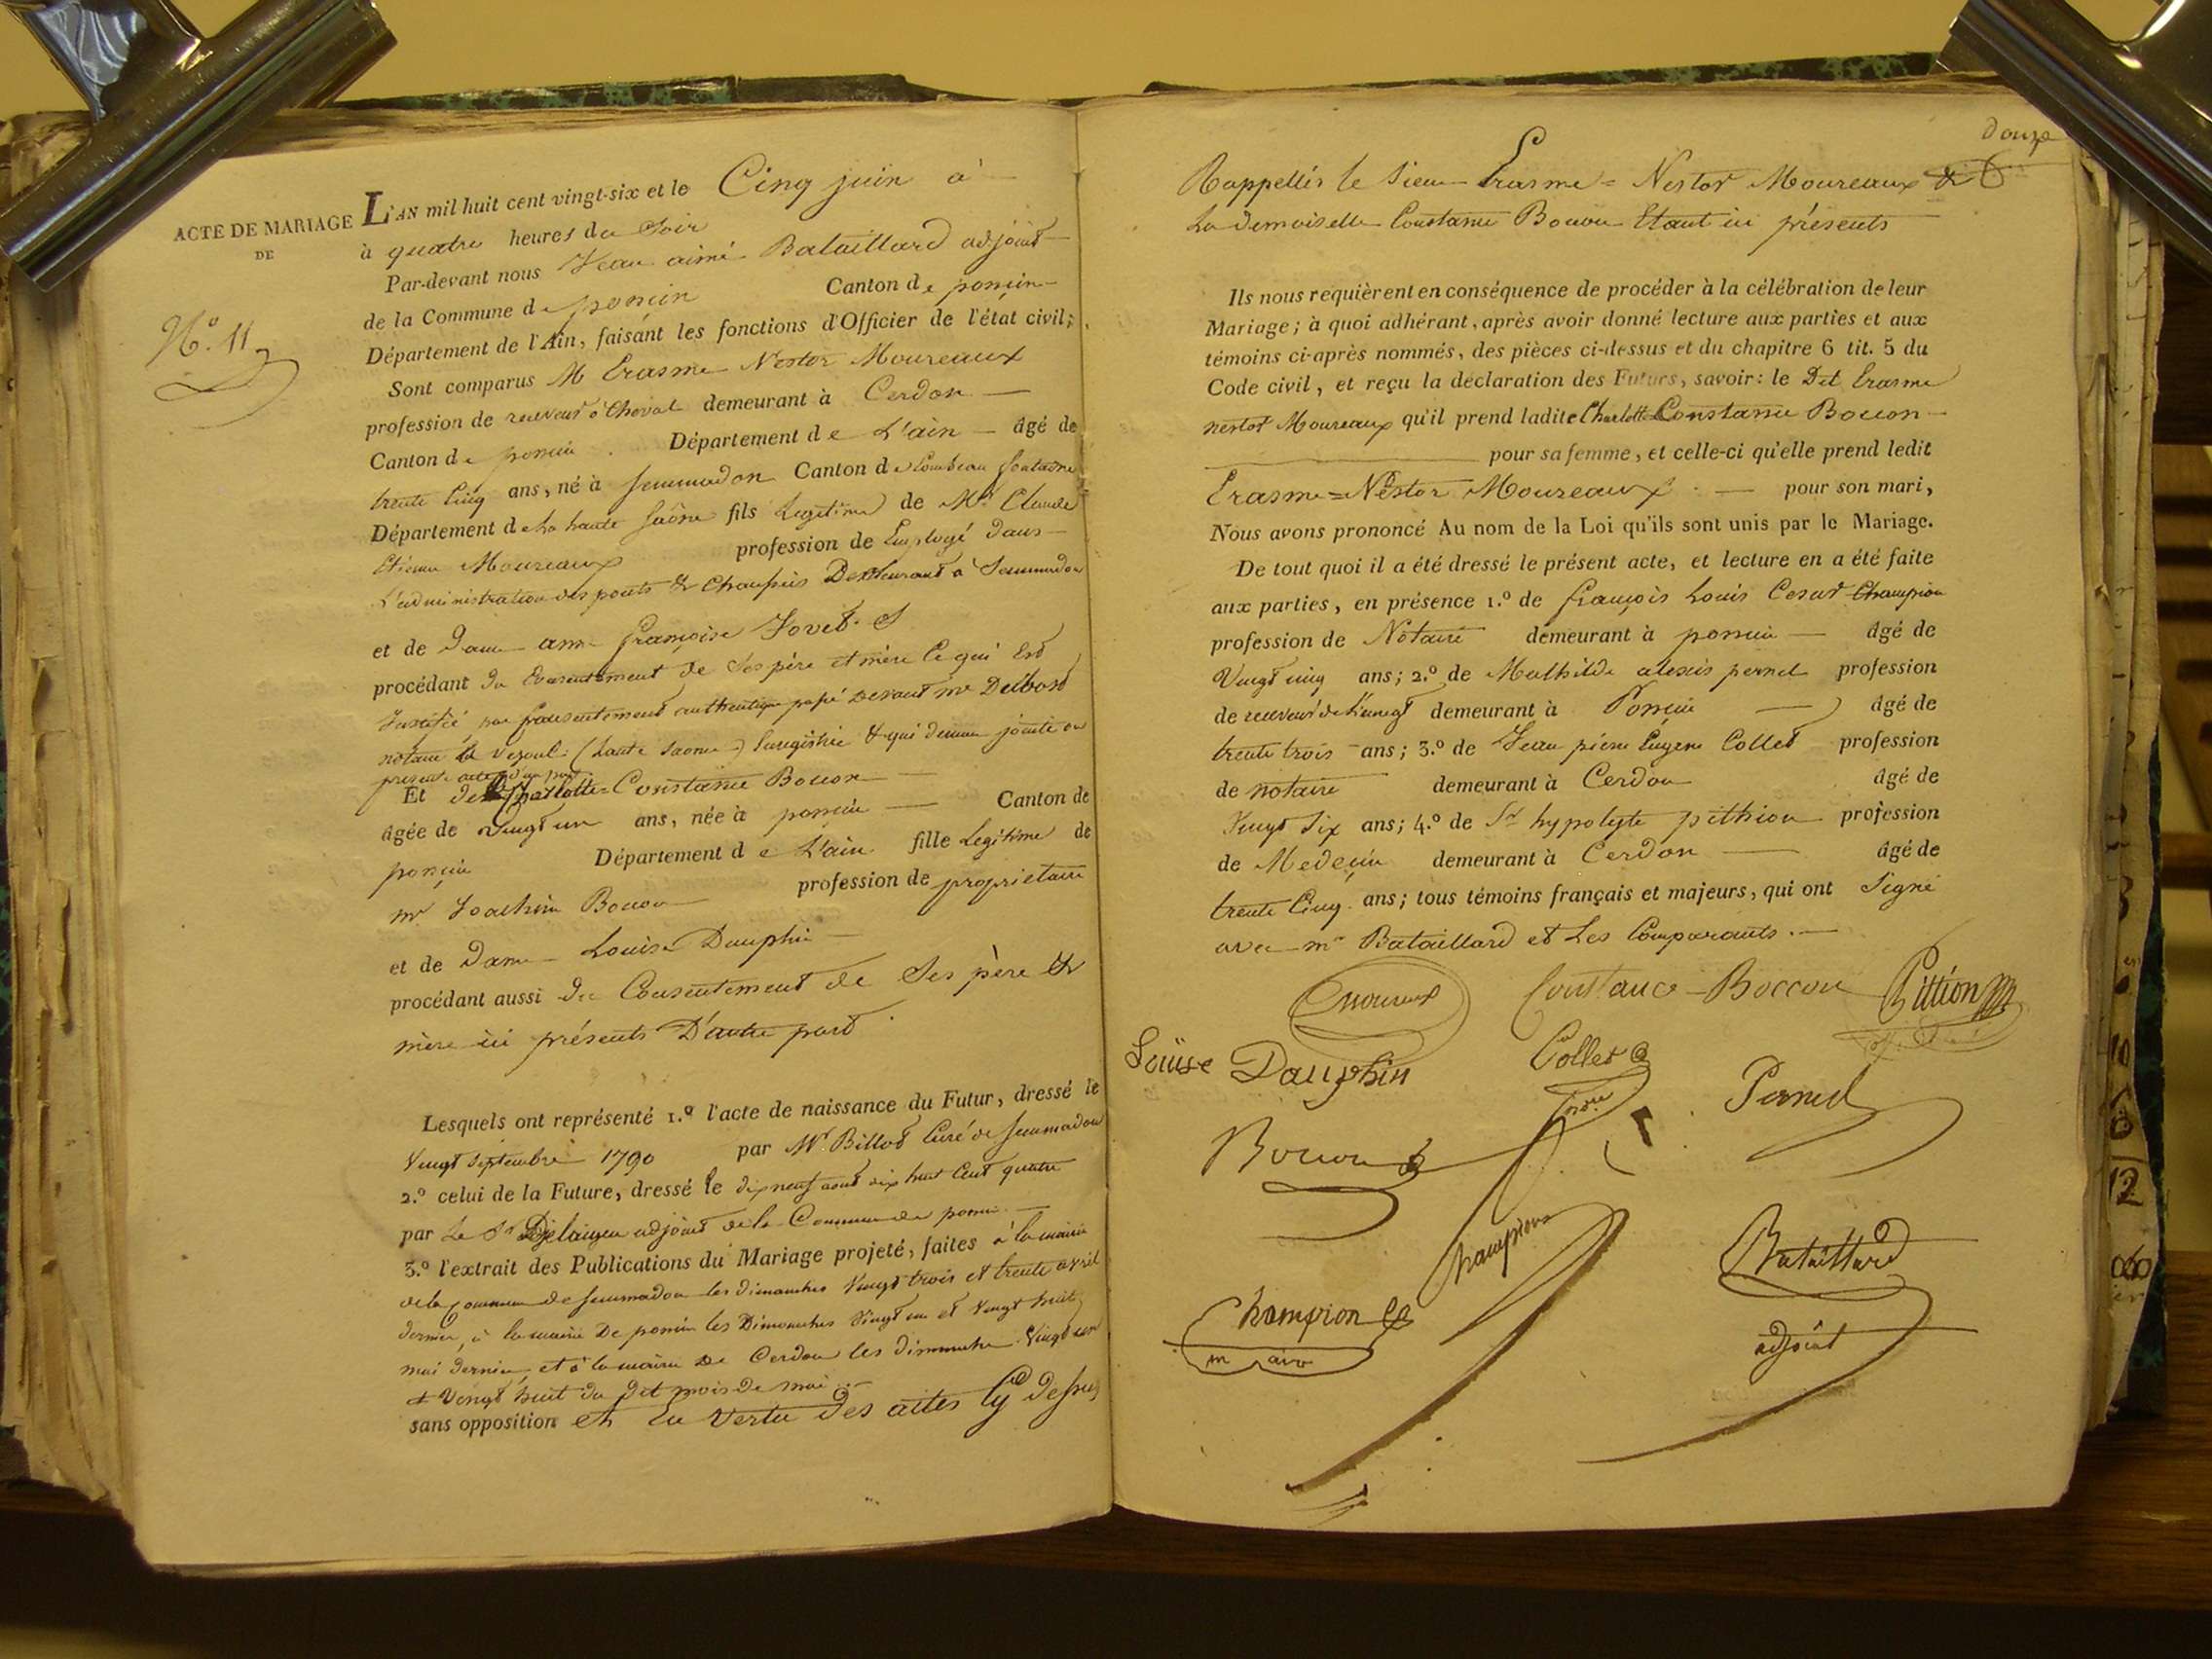 ACTE DE MARIAGE
DE
N.º 11
L'AN mil huit cent vingt-six et le Cinq juin à
à quatre heures du Soir
Par-devant nous Jean aimé Bataillard adjoint
de la Commune de poncin Canton de poncin
Département de l'Ain, faisant les fonctions d'Officier de l'état civil;
Sont comparus M Erasme Nestor Moureaux
profession de receveur à Cheval demeurant à Cerdon
Canton de poncin Département de L'ain âgé de
trente Cinq ans, né à Semmadon Canton de Combeau fontaine
Département de la haute Saône fils Legitime de Mr. Claude
Etienne Moureaux profession de Employé dans
L'administration des ponts & Chaussées Demeurant à Semmadon
et de Dame anne françoise Jovet
procédant du Consentement de Ses père et mère Ce qui Est
Justifié par Consentement authentique passé devant me Delbost
notaire à Vezoul (haute Saone) Enregistrée & qui demeure jointe au
présent acte d'une part
Et Charlotte = Constance Bocon
âgée de vingt un ans, née à poncin Canton de
poncin Département de L'ain fille Legitime de
mr Joachim Bocon profession de propriétaire
et de Dame Louise Dauphin
procédant aussi du Consentement de Ses père &
mère ici présents D'autre part
Lesquels ont représenté 1.º l'acte de naissance du Futur, dressé le
Vingt Septembre 1790 par Mr Billot Curé de Semmadon
2.º celui de la Future, dressé le dix neuf aout dix huit Cent quatre
par Le Sr adjoint de la Commune de poncin
3.º l'extrait des Publications du Mariage projeté, faites à la mairie
de la Commune de Semmadon les dimanches Vingt trois et trente avril
dernier, à la mairie De poncin les Dimanches Vingt un et Vingt huit
mai dernier, et à la mairie de Cerdon les dimanche Vingt un
& Vingt huit du dit mois de mai
sans opposition et En vertu des actes Cy dessus
douze
Rappellés le Sieur Erasme = Nestor Moureaux &
La demoiselle Constance Bocon Etant ici présents
Ils nous requièrent en conséquence de procéder à la célébration de leur
Mariage; à quoi adhérant, après avoir donné lecture aux parties et aux
témoins ci-après nommés, des pièces ci-dessus et du chapitre 6 tit. 5 du
Code civil, et reçu la déclaration des Futurs, savoir: le Dit Erasme
nestor Moureaux qu'il prend ladite Charlotte Constance Bocon
pour sa femme, et celle-ci qu'elle prend ledit
Erasme = Nestor Moureaux pour son mari,
Nous avons prononcé Au nom de la Loi qu'ils sont unis par le Mariage.
De tout quoi il a été dressé le présent acte, et lecture en a été faite
aux parties, en présence 1.º de françois Louis Cesar Champion
profession de Notaire demeurant à poncin âgé de
Vingt cinq ans; 2.º de Mathilde alexis pernet profession
de receveur demeurant à Poncin âgé de
trente trois ans; 3.º de Jean pierre Eugene Collet profession
de notaire demeurant à Cerdon âgé de
Vingt Six ans; 4.º de Sr hypolyte pithion profession
de Medeçin demeurant à Cerdon âgé de
trente Cinq ans; tous témoins français et majeurs, qui ont Signé
avec mr Bataillard et Les Comparants.
Constance Boccon Pittion
Louise Dauphin Collet
Pernet
Bocon
Champion
Champion
maire
Bataillard
adjoint